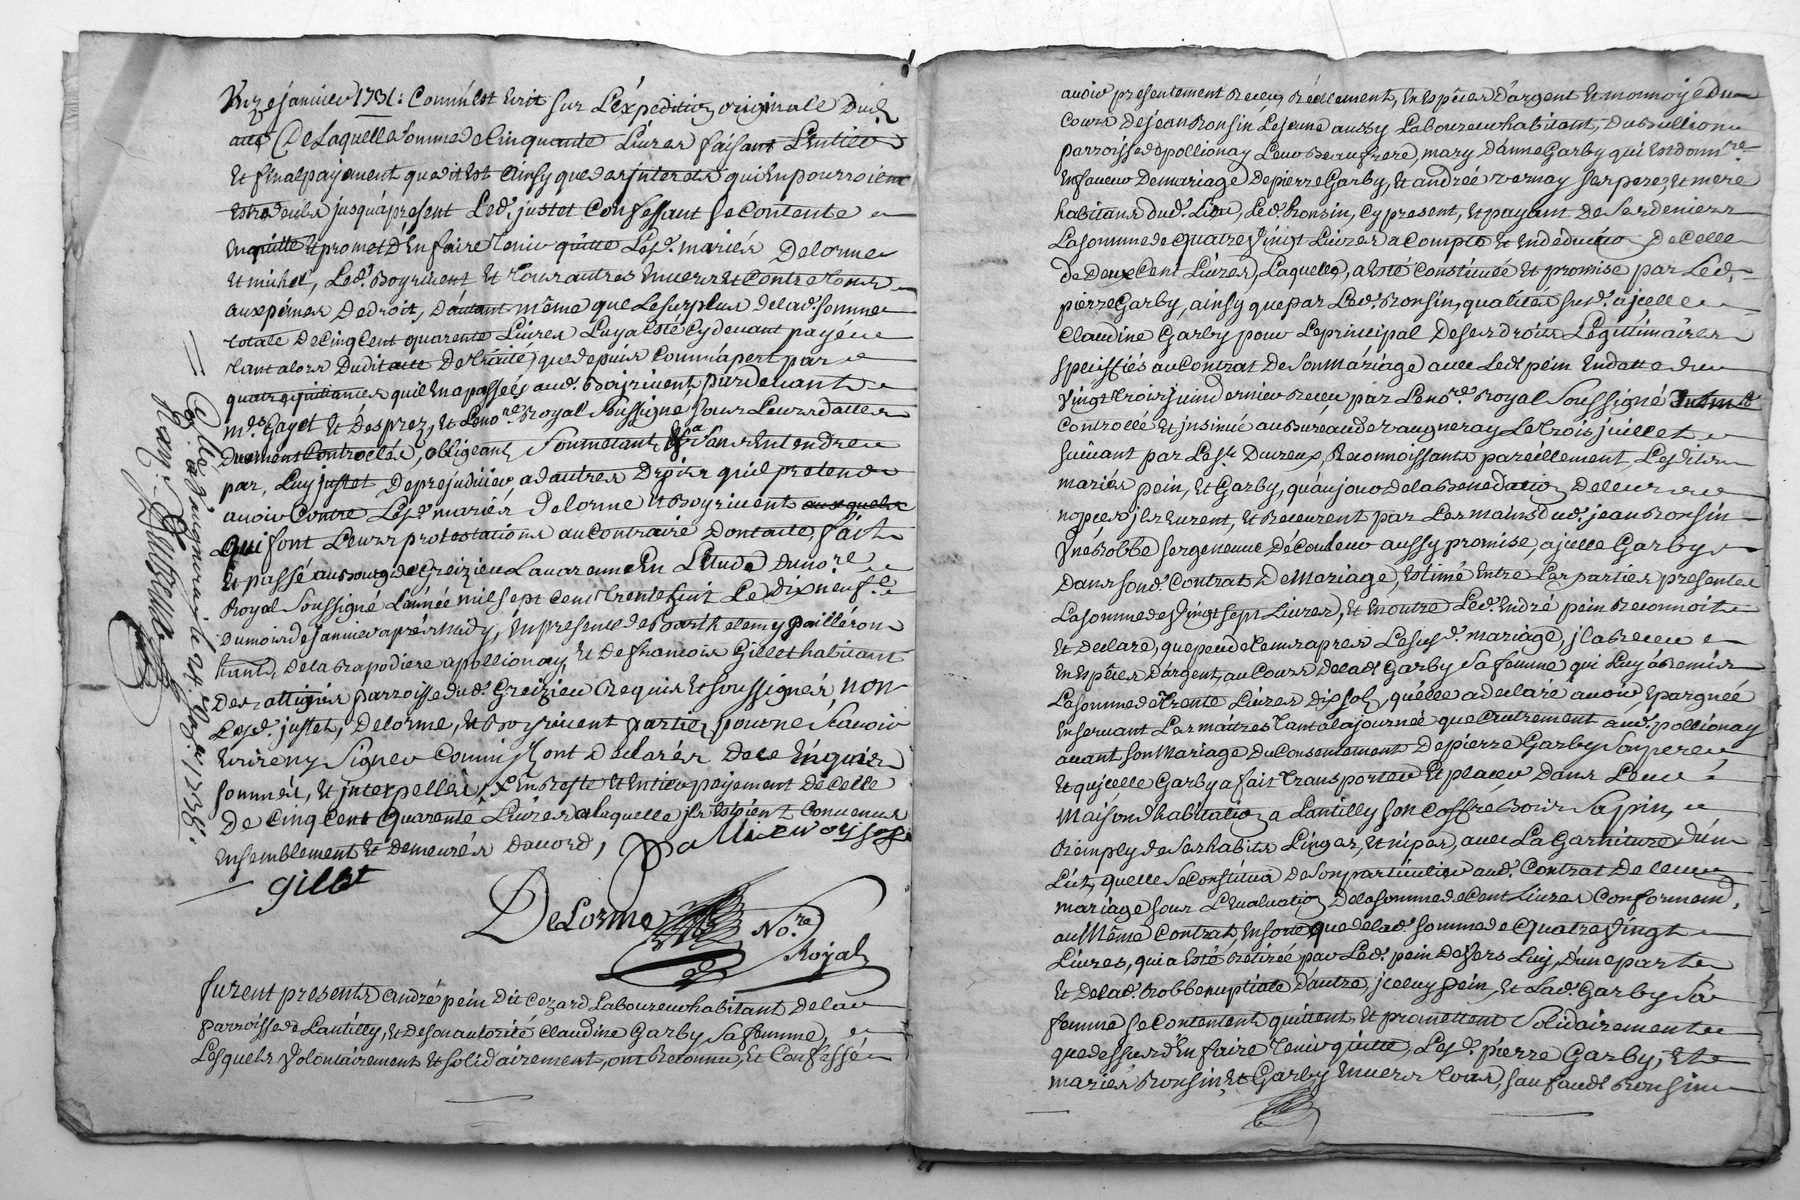 janvier 1731: Comm'est Ecrit sur L'expedition originale Dud.
acte (De Laquelle somme de Cinquante Livres faisant L'Entier
Et final payement que dit Est Ainsy que des jnterets qui En pourroient
Estre deubs jusqu'apresent Led. justet Confessant se Contente
En quitte Et promet D'En faire Tenir quitte Lesd. mariés Delorme
Et michel, Led. Boyrivent Et Tous autres Envers Et Contre Tous
aux peines De droit, D'autant même que Le surplus de lad. somme
totale De Cinq Cent quarente Livres Luy a Esté Cy devant payée
Tant alors Dudit acte De Traité, que depuis Comm'apert par
quatre quittances qu'il En a passées aud. Boyrivent, pardevant
mes. Gayet Et Desprez, Et Le no.re Royal Soussigné Sous Leurs dattes
Duement Controllés, obligeant Soumetant &a Sans Entendre
par, Luy justet De prejudicier, ad'autres Droits qu'il pretend
avoir Contre Lesd. mariés Delorme Et Boyrivent
qui font Leurs protestations au Contraire Dont acte, fait
Et passé au bourg de Greizieu Lavarenne En L'Etude Du no.re
Royal Soussigné L'année mil sept Cent Trente Et un Le Dix neuf.e
du mois de janvier aprés midy, En presence de Barthelemy pailléron
hant, De la Brapodiere a pollionay, Et De francois Gillet habitant
Des attignis parroisse dud. Greizieu Requis Et soussignés, non
Lesd. justet, Delorme, Et Boyrivent parties pour ne Scavoir
Ecrire ny Signer Comm'jls ont Declarés De ce Enquis
sommés, Et jnterpellés, En Reste Et Entier payement De Celle
De Cinq Cent Quarente Livres a laquelle jls Estoient Convenus
Ensemblement Et Demeurés Daccord,
gillet
DeLorme No.re
Royal
furent presents André pein Dit Cezard Laboureur habitant De la
parroisse de Lantilly, Et de son autorité Claudine Garby Sa femme,
Lesquels Volontairement Et solidairement, ont Reconnu, Et Confessé
avoir presentement Receu Réellement, En Espéces D'argent Et monnoye du
Cours De jean Ronsin Le jeune aussy Laboureur habitant, Du
parroisse de pollionay Leur Beaufrere, mary D'anne Garby qui Est donn.re
En faveur De mariage De pierre Garby, Et andrée vernay Ses pere, Et mere
habitans dud. Lieu, Led. Ronsin, Cy present, Et payant De Ses deniers
La somme de quatre Vingt Livres a Compte Et En deduction De Celle
de Deux Cent Livres, Laquelle, a Esté Constituée Et promise par Led.
pierre Garby, ainsy que par Led. Ronsin, qualités susd. a jcelle
Claudine Garby pour Le principal De ses droits Légittimaires
specifiés au Contrat De son Mariage avec Led. pein En datte du
Vingt Trois juin dernier Receu par Le no.re Royal Soussigné
Controllé Et jnsinué au Bureau de vaugneray Le Trois juillet
suivant par Le S.r Dureux, Reconnoissants pareillement Lesdits
mariés pein, Et Garby, qu'au jour De la Benediction De leurs
nopces jls Eurent, Et Receurent par Les mains dud. jean Ronsin
Vne Robbe serge neuve De Couleur aussy promise, a jcelle Garby
Dans sond. Contrat De Mariage, Estimé Entre Les parties presente
La somme de Vingt sept Livres, Et En outre Led. André pein Reconnoit
Et Declare, que peu de Tems apres Le susd. mariage, jl a Receu
En Espéces D'argent, au Cours De lad. Garby Sa femme qui Luy a Remis
La somme de Trente Livres dix sol, qu'elle a declaré avoir Epargnée
En servant Les maitres Tant a la journée que autrement aud. pollionay
avant son Mariage Du Consentement De pierre Garby Son pere
Et qu'jcelle Garby a fait Transporter Et placer Dans Leur
Maison d'habitation a Lantilly son Coffre Bois Sapin,
Remply de Ses habits Linges, Et nipes, avec La Garniture d'un
Lit, qu'elle Se Constitua De Son particulier aud. Contrat De leur
mariage sous L'Evaluation De la somme de Cent Livres Conformem.t
au Même Contrat, En sorte que de lad. somme de Quatre Vingt
Livres, qui a Esté Retirée par Led. pein De Vers Luy, D'une part
Et De lad. Robbe nuptiale d'autre, jceluy pein, Et Lad. Garby Sa
femme se Contentent, quittent, Et promettent Solidairement
que dessus D'En faire Tenir quitte, Lesd. pierre Garby, Et
mariés Ronsin, Et Garby Envers Tous, sauf aud. Ronsin